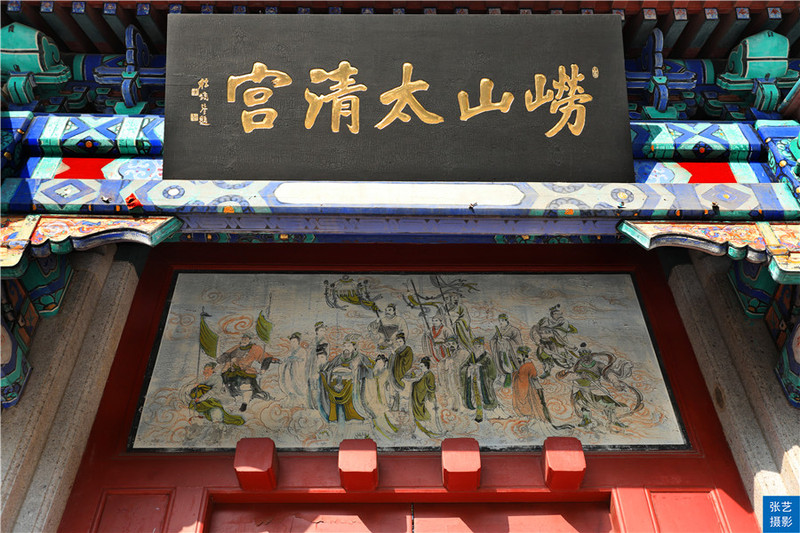 崂山太清宫
张艺
摄影